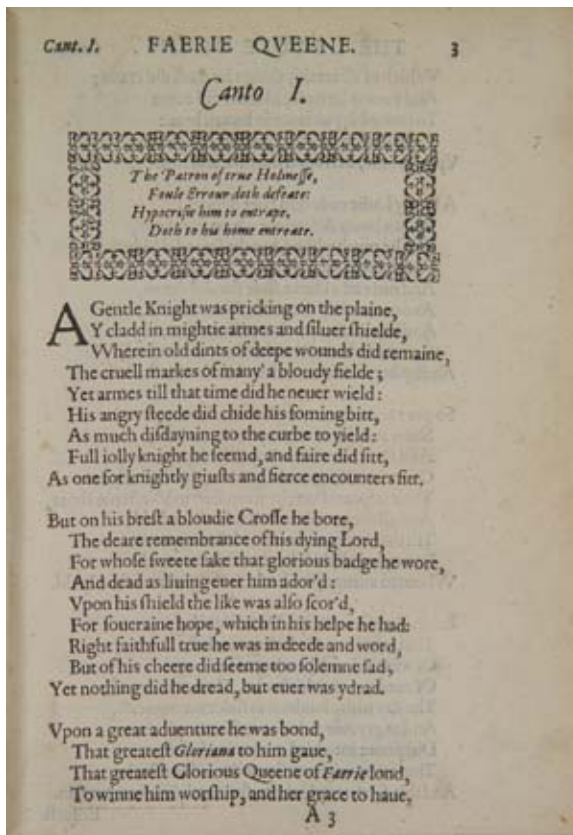 Cant. I. FAERIE QVEENE. 3
Canto I.
The Patron of true Holineſſe,
Foule Errour doth defeate:
Hypocriſie him to entrape,
Doth to his home entreate.
A Gentle Knight was pricking on the plaine,
Y cladd in mightie armes and ſiluer ſhielde,
Wherein old dints of deepe wounds did remaine,
The cruell markes of many' a bloudy fielde;
Yet armes till that time did he neuer wield:
His angry ſteede did chide his foming bitt,
As much diſdayning to the curbe to yield:
Full iolly knight he ſeemd, and faire did ſitt,
As one for knightly giuſts and fierce encounters fitt.
But on his breſt a bloudie Croſſe he bore,
The deare remembrance of his dying Lord,
For whoſe ſweete ſake that glorious badge he wore,
And dead as liuing euer him ador'd:
Vpon his ſhield the like was alſo ſcor'd,
For ſoueraine hope, which in his helpe he had:
Right faithfull true he was in deede and word,
But of his cheere did ſeeme too ſolemne ſad,
Yet nothing did he dread, but euer was ydrad.
Vpon a great aduenture he was bond,
That greateſt Gloriana to him gaue,
That greateſt Glorious Queene of Faerie lond,
To winne him worſhip, and her grace to haue,
A 3